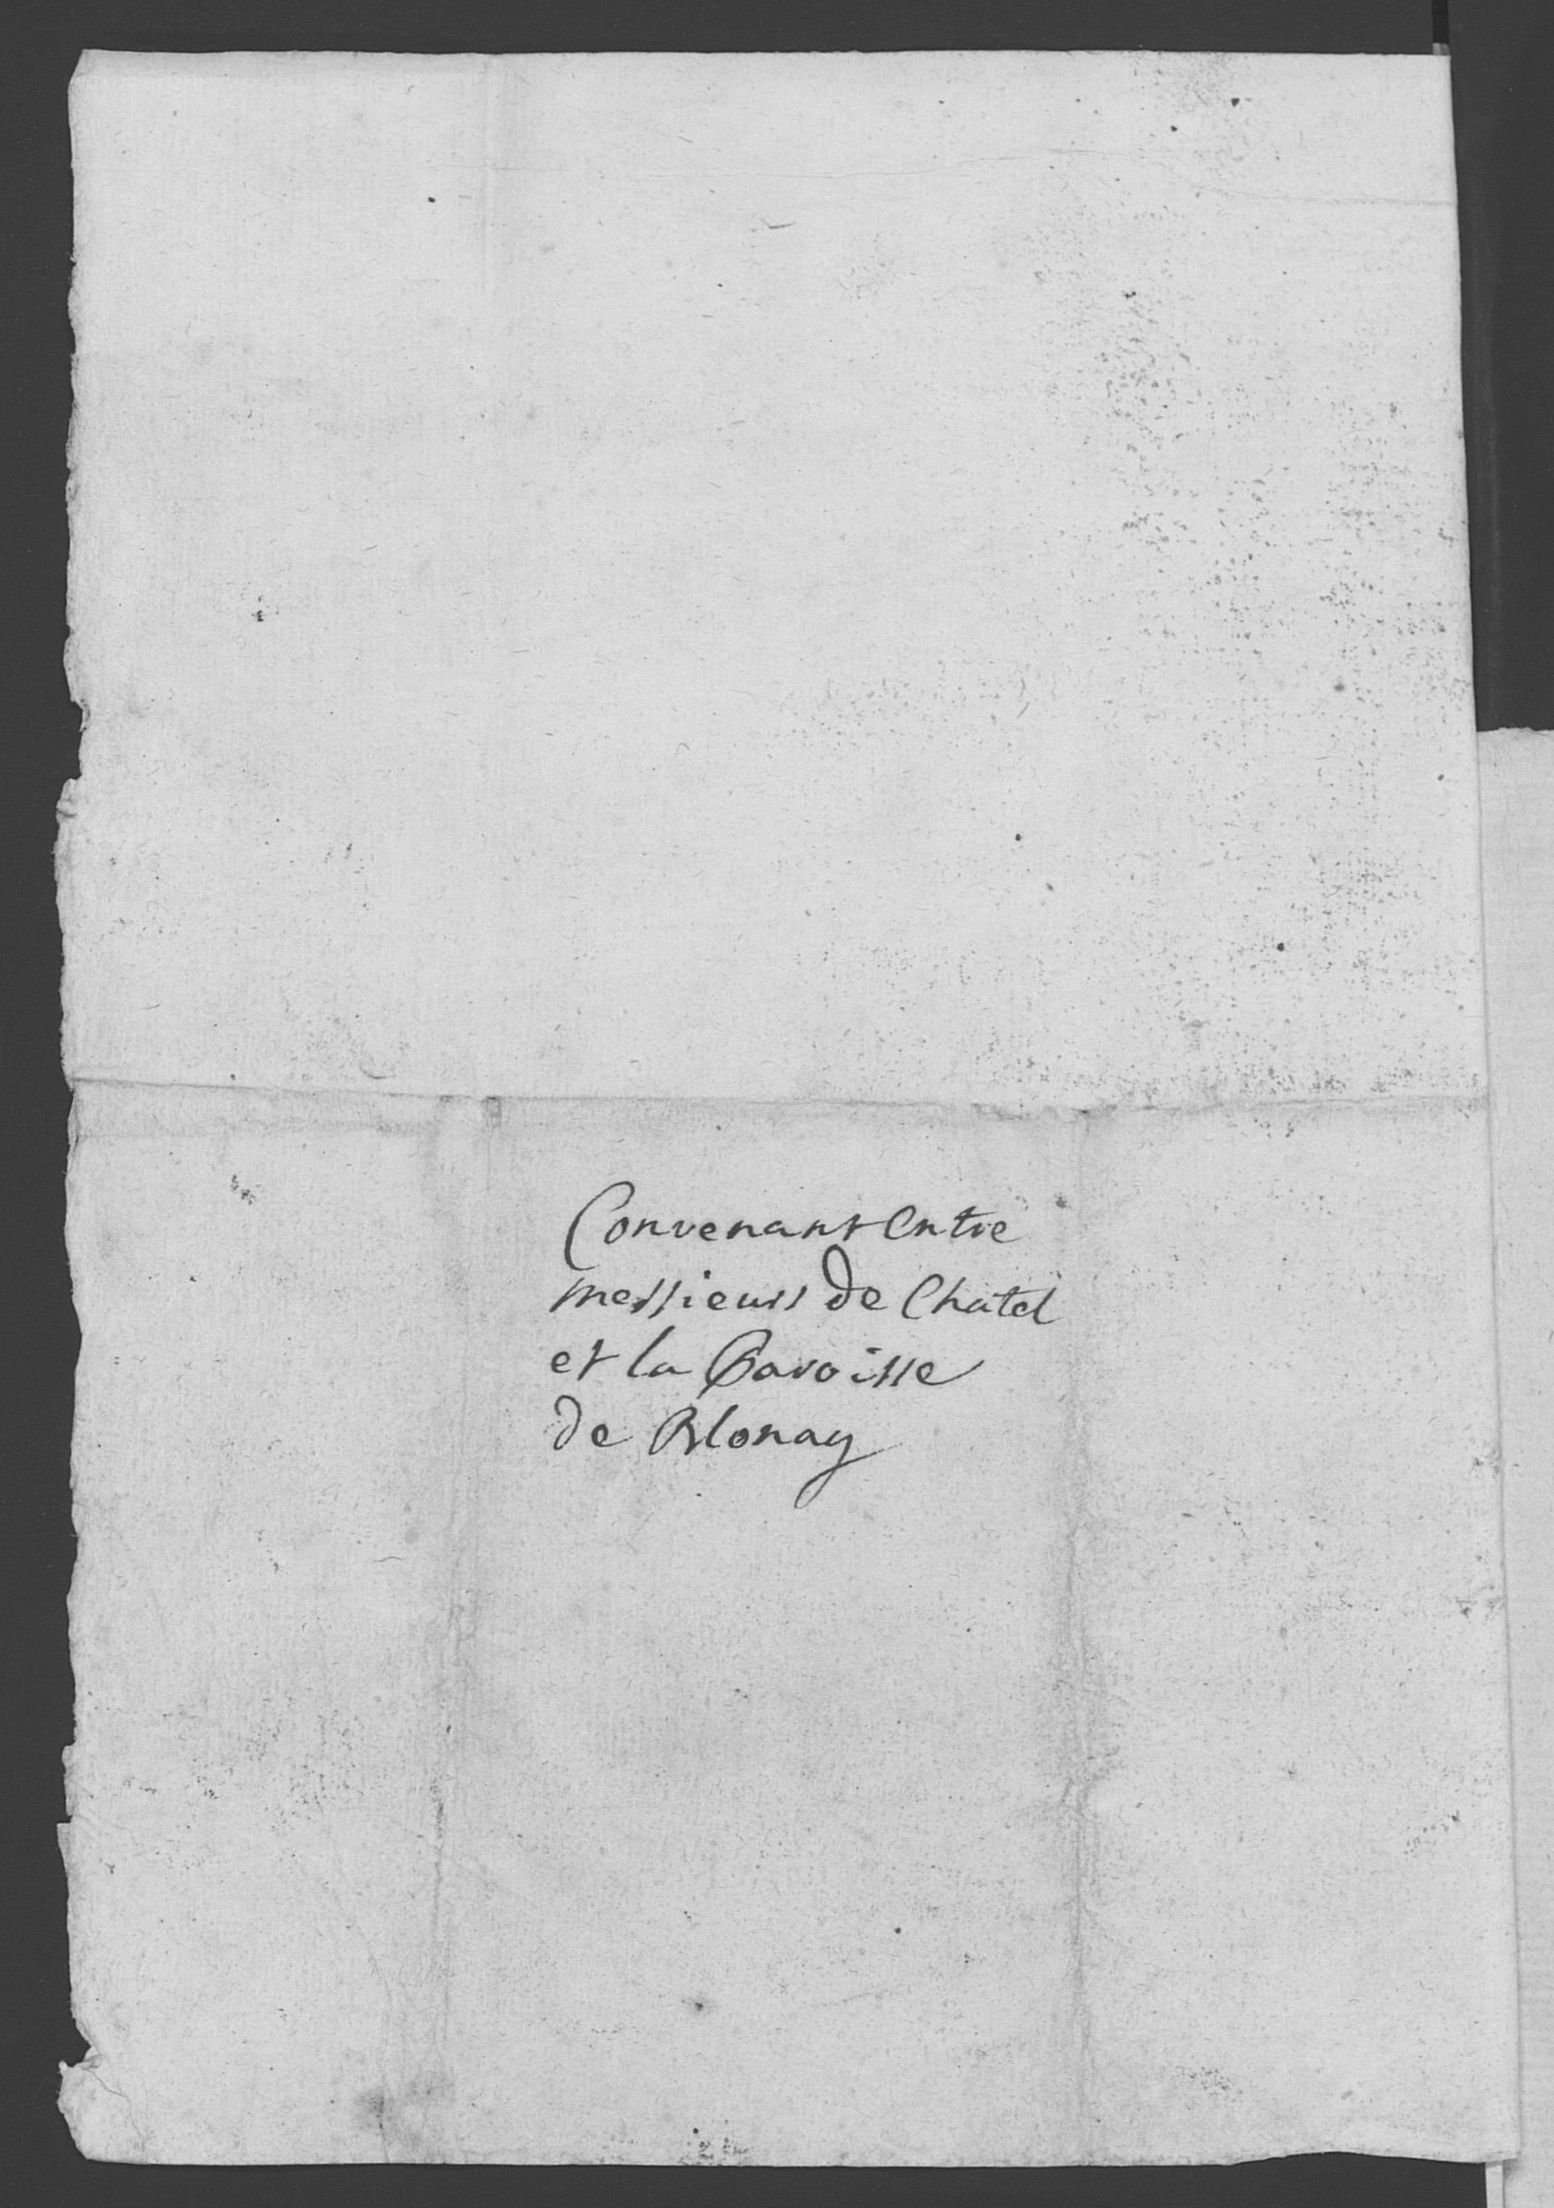 Convenant Entre
messieurs de Chatel
et la Paroisse
de Blonay